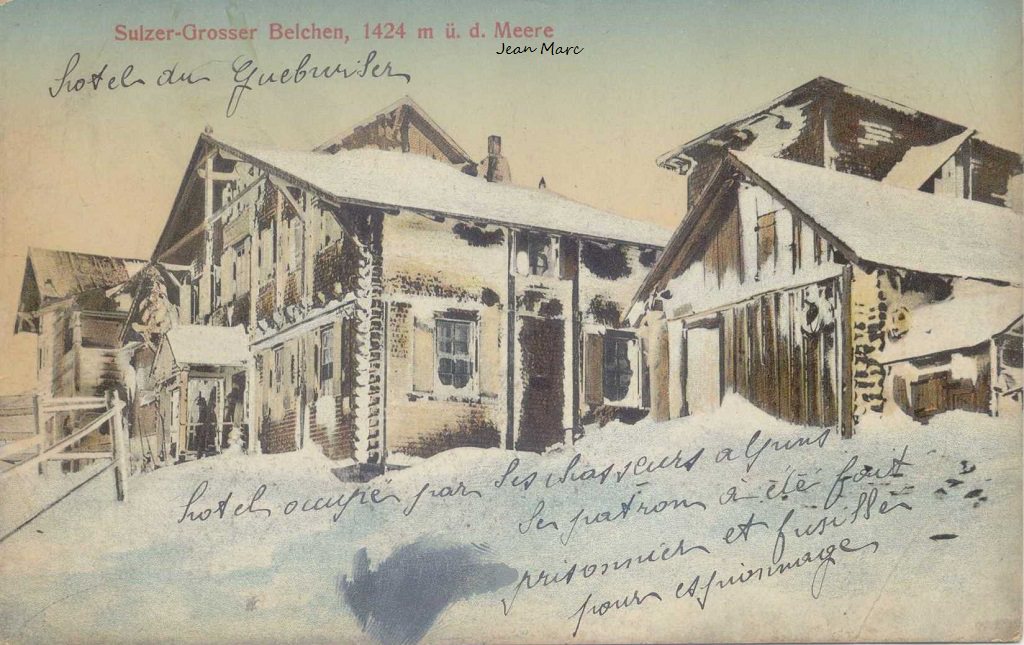 Sulzer-Grosser Belchen, 1424 m ü. d. Meere
Jean Marc
hotel du Guebwiler
hotel occupée par les chasseurs alpins
le patron à été fait
prisonnier et fusillé
pour espionnage